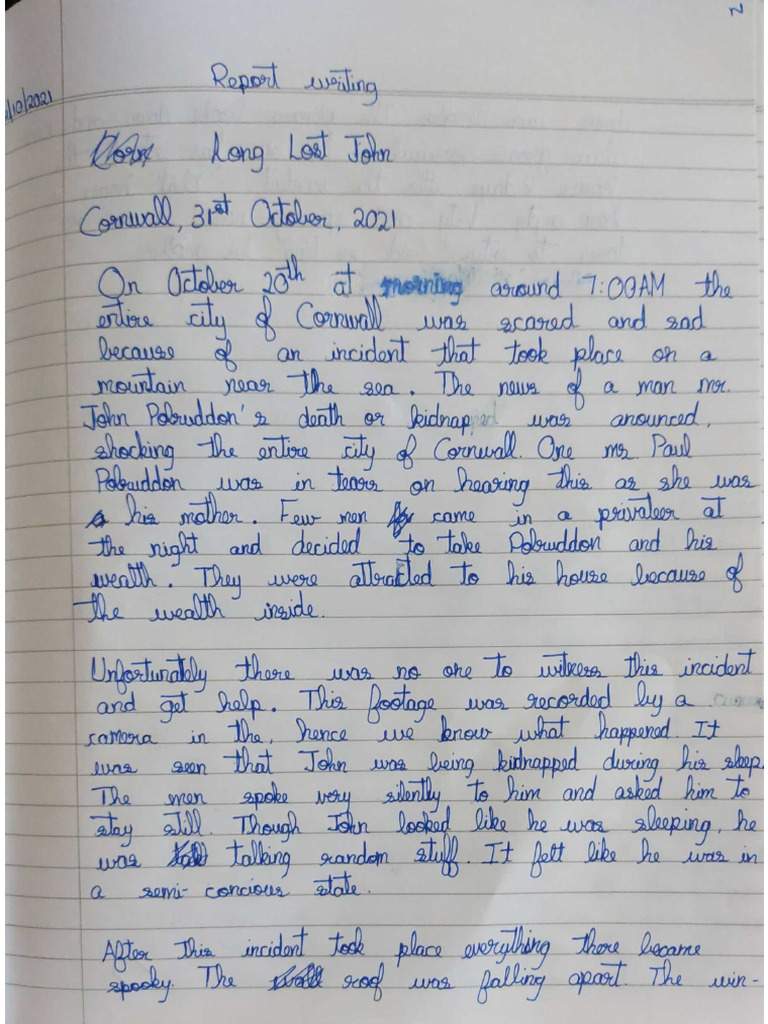 Report writing
/10/2021
Long Lost John
Cornwall, 31st October, 2021
On October 20th at morning around 7:00AM the
entire city of Cornwall was scared and sad
because of an incident that took place on a
mountain near the sea. The news of a man mr.
John Polruddon's death or kidnapped was anounced,
shocking the entire city of Cornwall. One ms. Paul
Polruddon was in tears on hearing this as she was
his mother. Few men came in a privateer at
the night and decided to take Polruddon and his
wealth. They were attracted to his house because of
the wealth inside.
Unfortunately there was no one to witness this incident
and get help. This footage was recorded by a
camera in the, hence we know what happened. It
was seen that John was being kidnapped during his sleep.
The men spoke very silently to him and asked him to
stay still. Though John looked like he was sleeping, he
was talking random stuff. It felt like he was in
a semi-concious state.
After this incident took place everything there became
spooky. The roof was falling apart. The win-